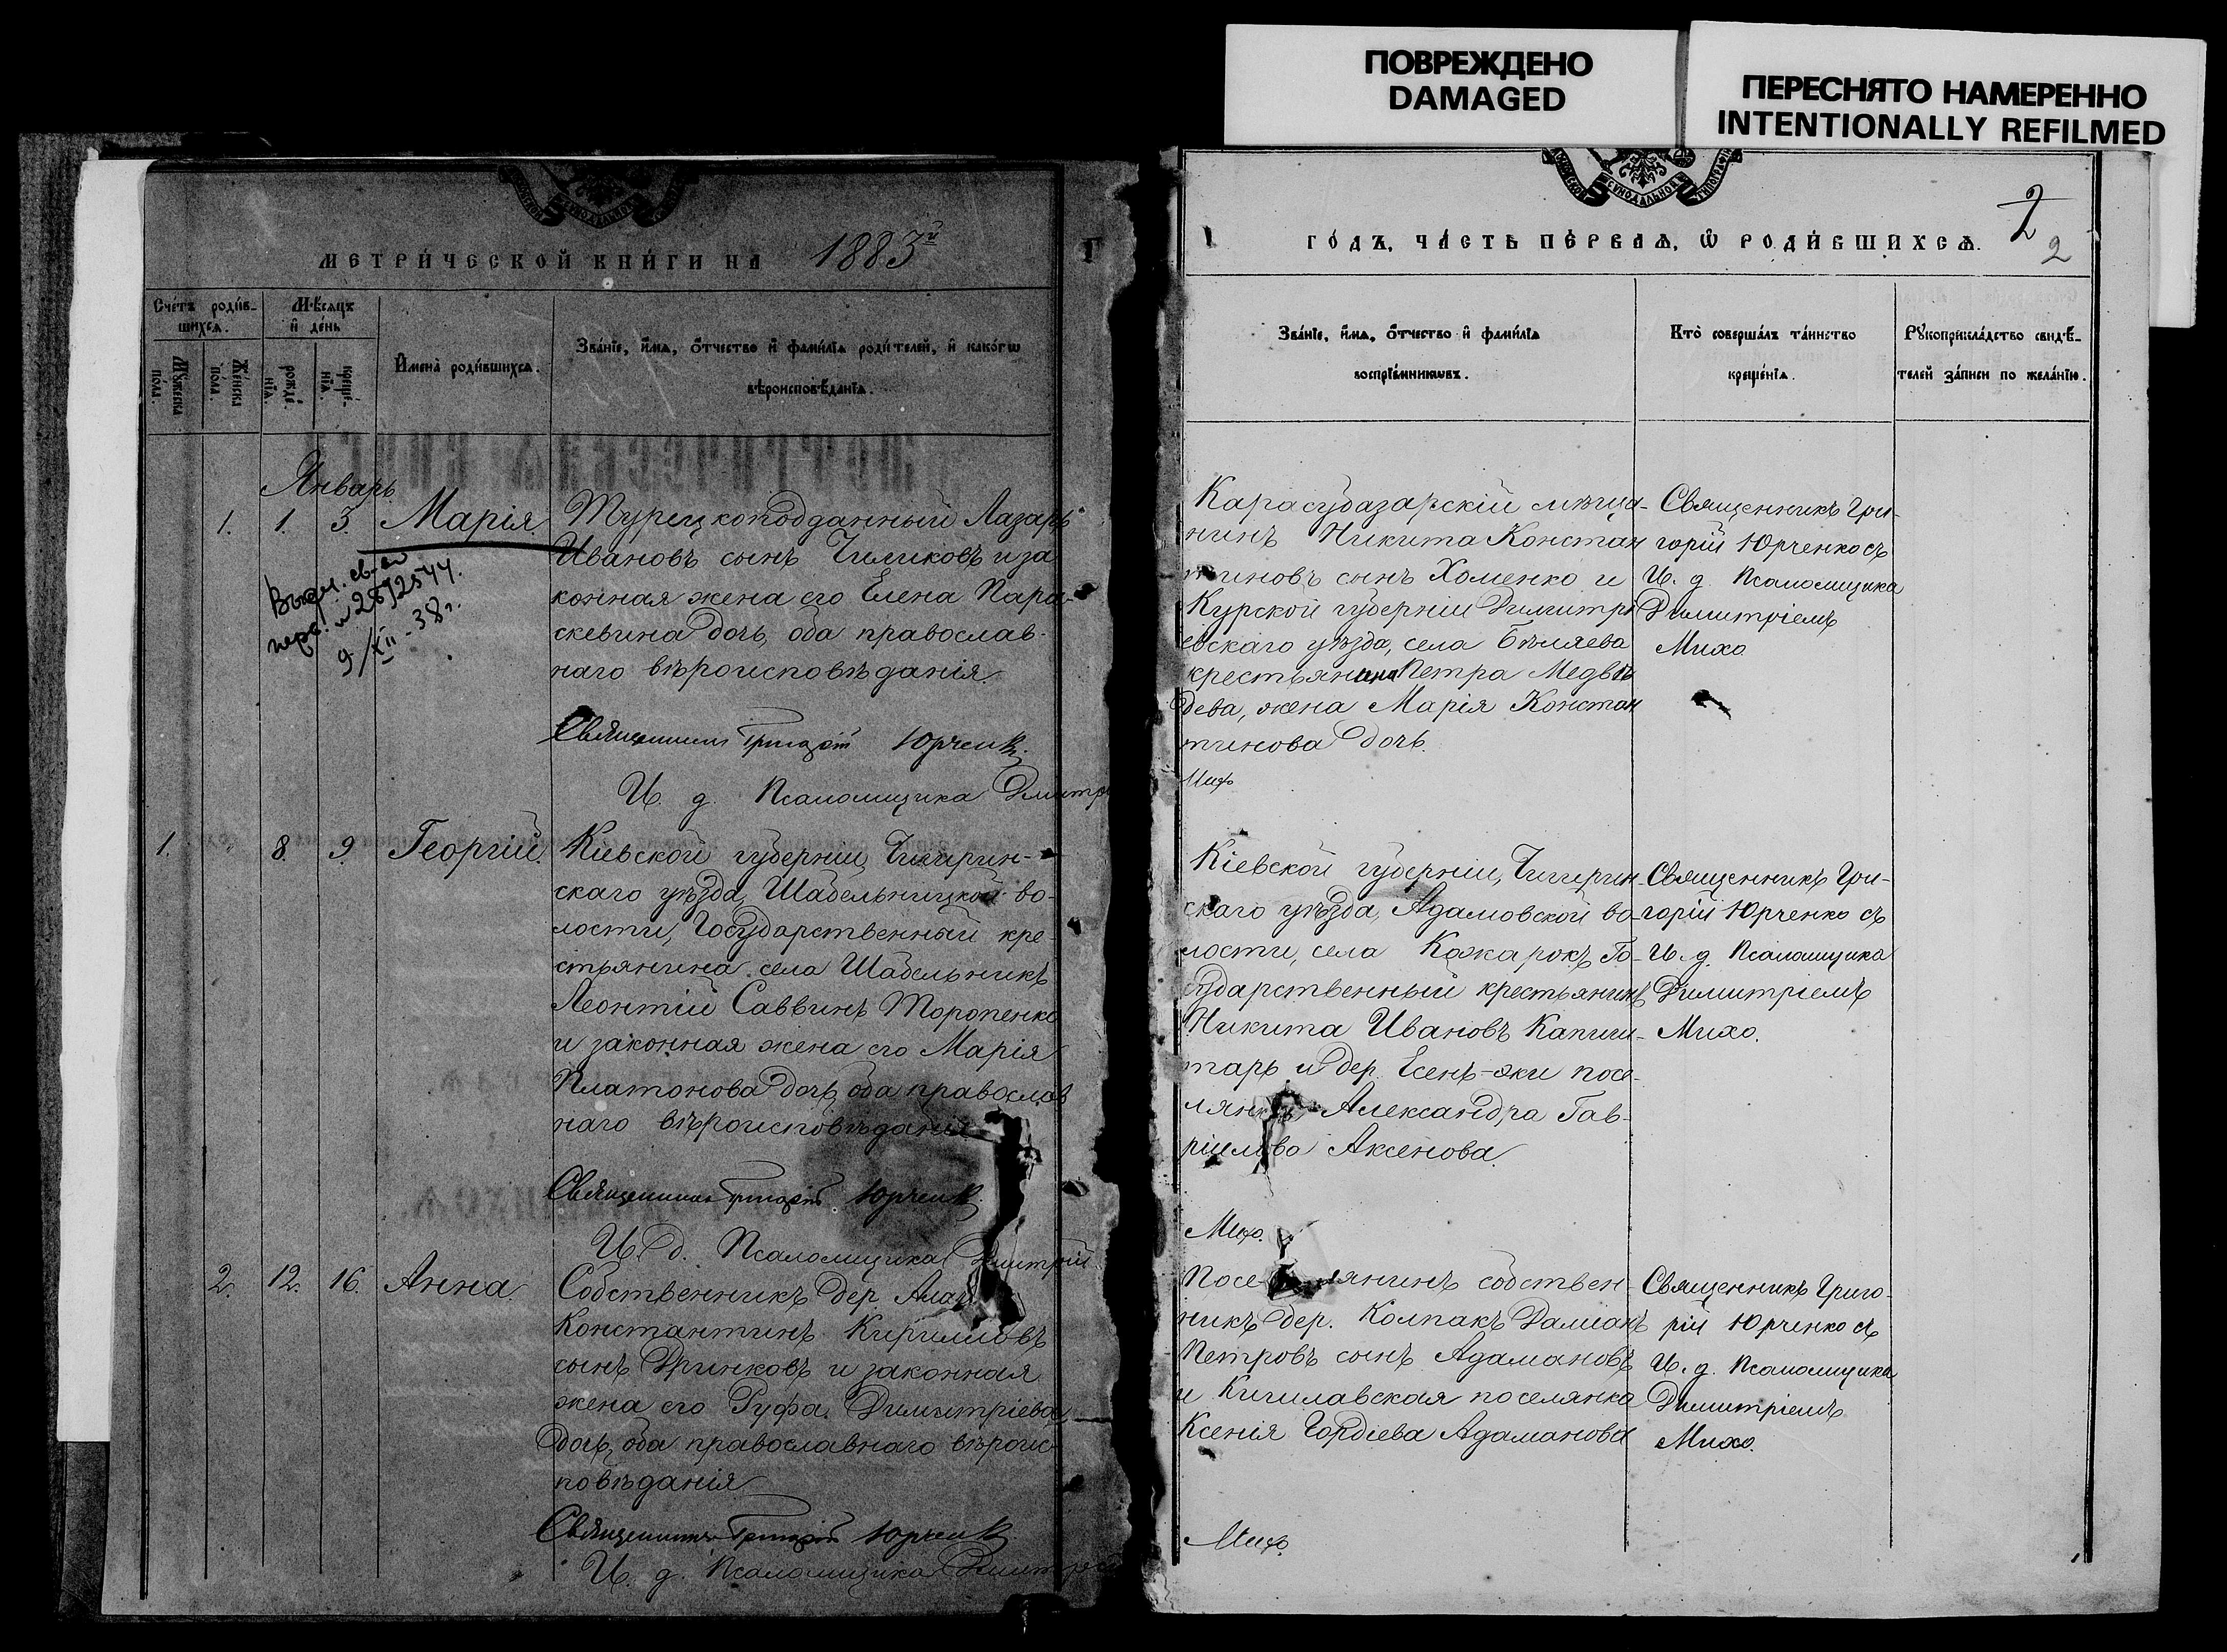 ПОВРЕЖДЕНО
DAMAGED
ПЕРЕСНЯТО НАМЕРЕННО
INTENTIONALLY REFILMED
МЕТРИ́ЧЕСКОЙ КНИ́ГИ НА 1883й
Сче́тъ роди́в-
шихсѧ.
Мѣ́сѧцъ
и҆ де́нь
Му́жеска
по́ла.
Же́нска
по́ла.
рожде́-
нїѧ.
креще́-
нїѧ.
И҆мена̀ роди́вшихсѧ.
Зва́нїе, и҆́мѧ, ѻ҆́тчество и҆ фами́лїѧ роди́телей, и҆ како́гѡ
вѣроисповѣ́данїѧ.
Январь
1. 1. 3. Марія.
Турецкоподданный Лазарь
Ивановъ сынъ Чиликовъ и за
конная жена его Елена Пара-
скевина дочь, оба православ-
наго вѣроисповѣданія.
9/XII-38г.
Священникъ Григорій Юрченко.
И. д. Псаломщика Димитрі
1. 8. 9. Георгій.
Кіевской губерніи, Чигирин-
скаго уѣзда, Шабельницкой во-
лости, Государственный кре-
стьянина села Шабельникъ
Леонтій Саввинъ Торопенко
и законная жена его Марія
Платонова дочь, оба православ
наго вѣроисповѣданія
Священникъ Григорій Юрченко.
И. д. Псаломщика Димитрій
2. 12. 16. Анна.
Собственникъ дер.
Константинъ Кирилловъ
сынъ Дринковъ и законная
жена его Руфа Димитріева
дочь, оба православнаго вѣроис-
повѣданія
Священникъ Григорій Юрченко
И. д. Псаломщика Димитрій
ГО́ДЪ, ЧА́СТЬ ПЕ́РВАѦ, Ѡ҆ РОДИ́ВШИХСѦ.
2
2
Зва́нїе, и҆́мѧ, ѻ҆́тчество и҆ фами́лїѧ
воспрїе́мникѡвъ.
Кто̀ соверша́лъ та́инство
креще́нїѧ.
Рꙋкоприкла́дство свидѣ́-
телей за́писи по жела́нїю.
Карасубазарскій мѣща-
нинъ Никита Констан
тиновъ сынъ Хоменко и
Курской губерніи Димитрі
евскаго уѣзда, села Бѣляева
крестьянина Петра Медвѣ
дева, жена Марія Констан
тинова дочь.
Михо
Священникъ Гри-
горій Юрченко съ
И. д. Псаломщика
Димитріемъ
Михо.
Кіевской губерніи, Чигирин-
скаго уѣзда, Адамовской во-
лости, села Кожарокъ Го-
сударственный крестьянинъ
Никита Ивановъ Капини-
тарь и дер. Есень-эки посе-
Александра Гав-
ріилова Аксенова.
Михо.
Священникъ Гри-
горій Юрченко съ
И. д. Псаломщика
Димитріемъ
Михо.
Посе янинъ собствен-
никъ дер. Колпакъ Даміанъ
Петровъ сынъ Адамановъ
и Кишлавская поселянка
Ксенія Гордіева Адаманова
Михо.
Священникъ Григо-
рій Юрченко съ
И. д. Псаломщика
Димитріемъ
Михо.